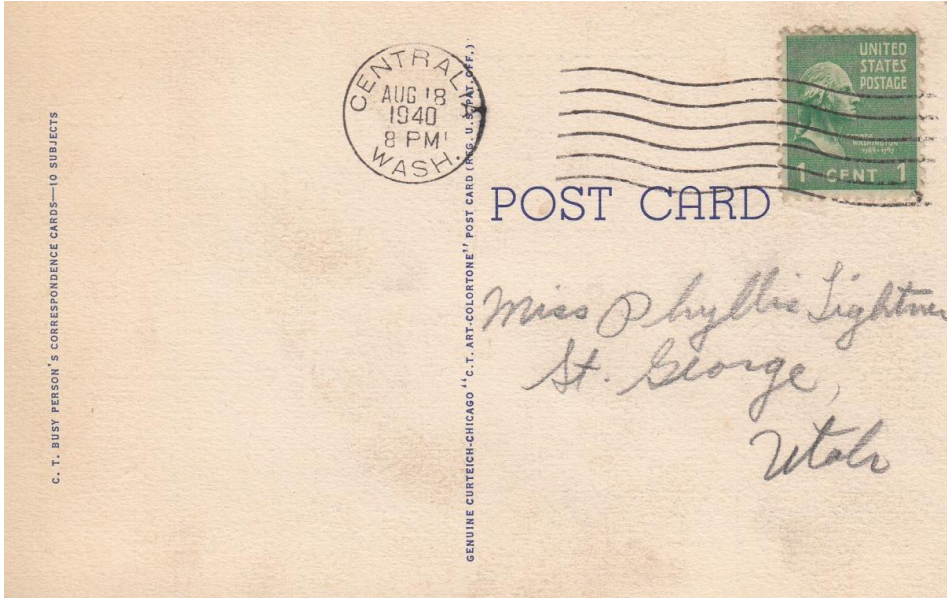 C. T. BUSY PERSON'S CORRESPONDENCE CARDS—10 SUBJECTS
CENTRALIA
AUG 18
1940
8 PM
WASH.
GENUINE CURTEICH-CHICAGO "C.T. ART-COLORTONE" POST CARD (REG. U.S. PAT. OFF.)
UNITED
STATES
POSTAGE
WASHINGTON
1789-1797
1 CENT 1
POST CARD
Miss Phyllis Lightner
St. George,
Utah